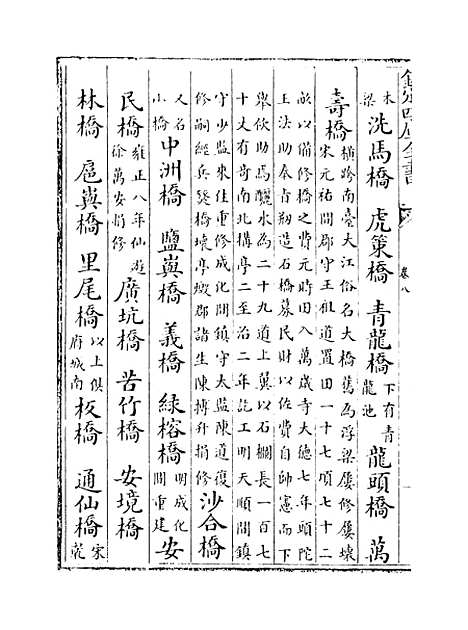 欽定四庫全書 卷八
木梁 洗馬橋 虎策橋 青龍橋 下有青龍池 龍頭橋 萬
壽橋 橫跨南臺大江俗名大橋舊為浮梁屢修屢壞
宋元祐間郡守王祖道置田一十七頃七十二
畝以備修橋之費元時田入萬歲寺大德七年頭陀
王法助奉旨剏造石橋募民財以佐費自帥憲而下
舉佽助焉釃水為二十九道上翼以石欄長一百七
十丈有奇南北構亭二至治二年訖工明天順間鎮
守少監來住重修成化間鎮守太監陳道復
修嗣經兵燹橋壞亭燬郡諸生陳搏升捐修 沙合橋
又名小橋 中洲橋 鹽嶴橋 義橋 緑榕橋 明成化間重建 安
民橋 雍正八年仙遊徐萬安捐修 廣坑橋 苦竹橋 安境橋
林橋 扈嶴橋 里尾橋 以上俱府城南 板橋 通仙橋 宋乾